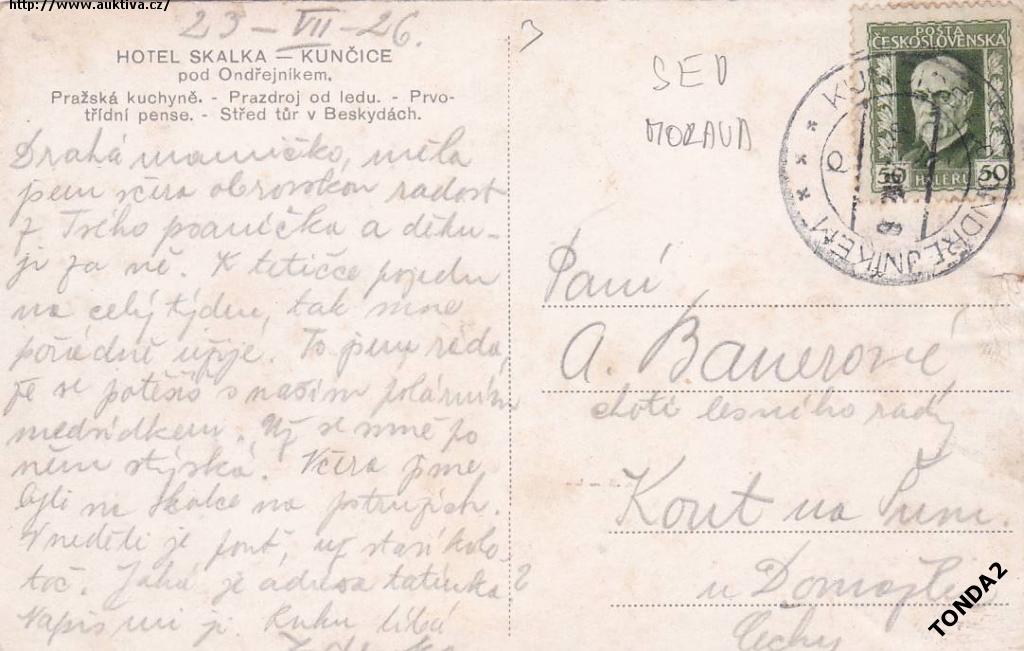 http://www.auktiva.cz/
23-VII-26.
HOTEL SKALKA — KUNČICE
pod Ondřejníkem.
Pražská kuchyně. - Prazdroj od ledu. - Prvo-
třídní pense. - Střed túr v Beskydách.
Drahá mamičko, měla
jsem včera obrovskou radost
z Tvého psaníčka a děku-
ji za ně. K tetičce pojedu
na celý týden, tak mne
pořádně užije. To jsem ráda,
že se potěšíš s naším polárním
medvídkem. Už se mně po
něm stýská. Včera jsme
byli na Skalce na pstruzích.
V neděli je pouť, už staví kolo-
toč. Jaká je adresa tatínka?
Napiš mi ji. Ruku líbá
Zdenka
SED
MORAVA
POŠTA
ČESKOSLOVENSKÁ
50 HALÉŘŮ 50
POD ONDŘEJNÍKEM
Paní
A. Bauerové
choti lesního rady
Kout na Šum.
u Domažlic
Čechy
TONDA2